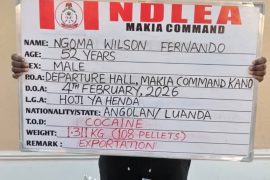 NDLEA
MAKIA COMMAND
NAME: NGOMA WILSON FERNANDO
AGE: 52 YEARS
SEX: MALE
P.O.A: DEPARTURE HALL, MAKIA COMMAND KANO
D.O.A: 4TH FEBRUARY, 2026
L.G.A: HOJI YA HENDA
NATIONALITY/STATE: ANGOLAN/ LUANDA
T.O.D: COCAINE
WEIGHT: 1.311 KG (108 PELLETS)
REMARK: EXPORTATION